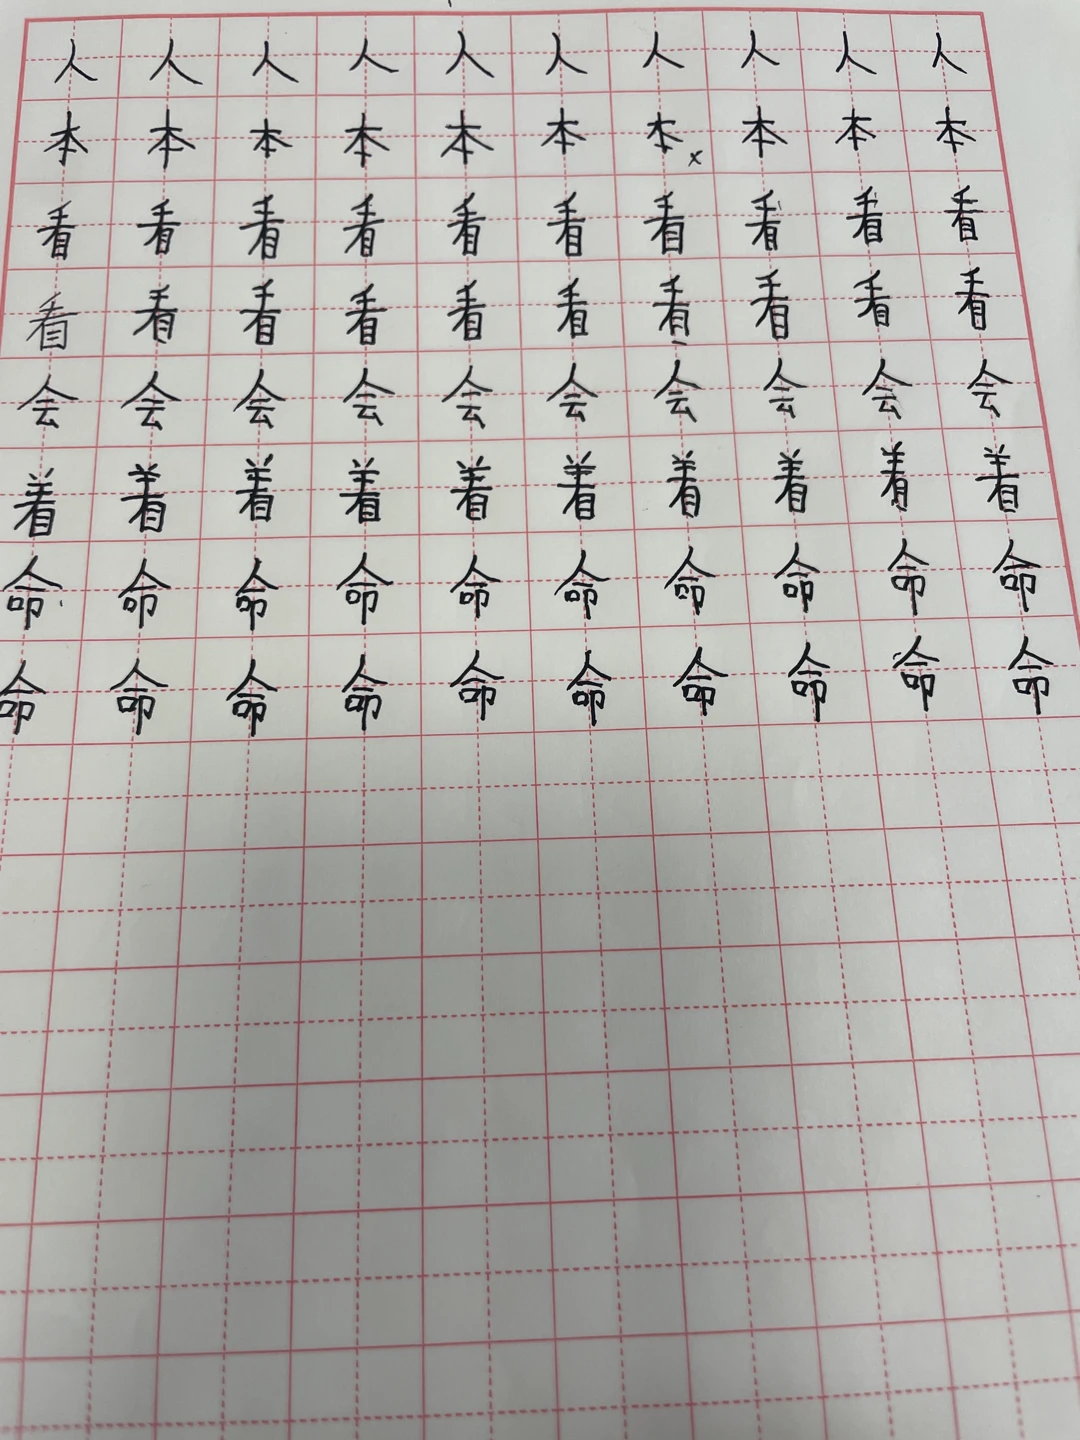 人人人人人人人人人人
本本本本本本本本本本
x
看看看看看看看看看看
看看看看看看看看看看
会会会会会会会会会会
着着着着着着着着着着
命命命命命命命命命命
命命命命命命命命命命